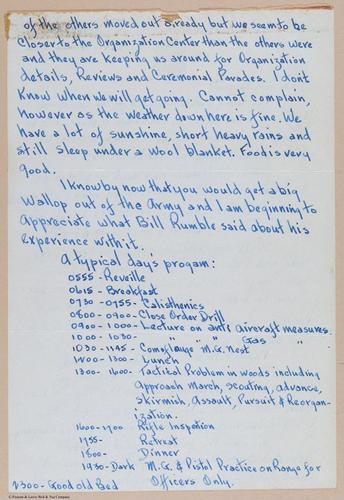 of the others moved out already but we seem to be
closer to the Organization Center than the others were
and they are keeping us around for Organization
details, Reviews and Ceremonial Parades. I dont
know when we will get going. Cannot complain,
however as the weather down here is fine. We
have a lot of sunshine, short heavy rains and
still sleep under a wool blanket. Food is very
good.
I know by now that you would get a big
Wallop out of the Army and I am beginning to
appreciate what Bill Rumble said about his
experience with it.
A typical day's progam:
0555 - Reveille
0615 - Breakfast
0730 - 0755 - Calisthenics
0800 - 0900 - Close Order Drill
0900 - 1000 - Lecture on anti aircraft measures.
1000 - 1030 - " " Gas "
1030 - 1145 - Camoflauge M.G. Nest
1200 - 1300 - Lunch
1300 - 1600 - Tactical Problem in woods including
approach march, scouting, advance,
skirmish, assault, Pursuit & Reorgan-
ization.
1600 - 1700 Rifle Inspetion
1755 - Retreat
1800 - Dinner
1930 - Dark M.G. & Pistol Practice on Range for
Officers Only.
2300 - Good old Bed